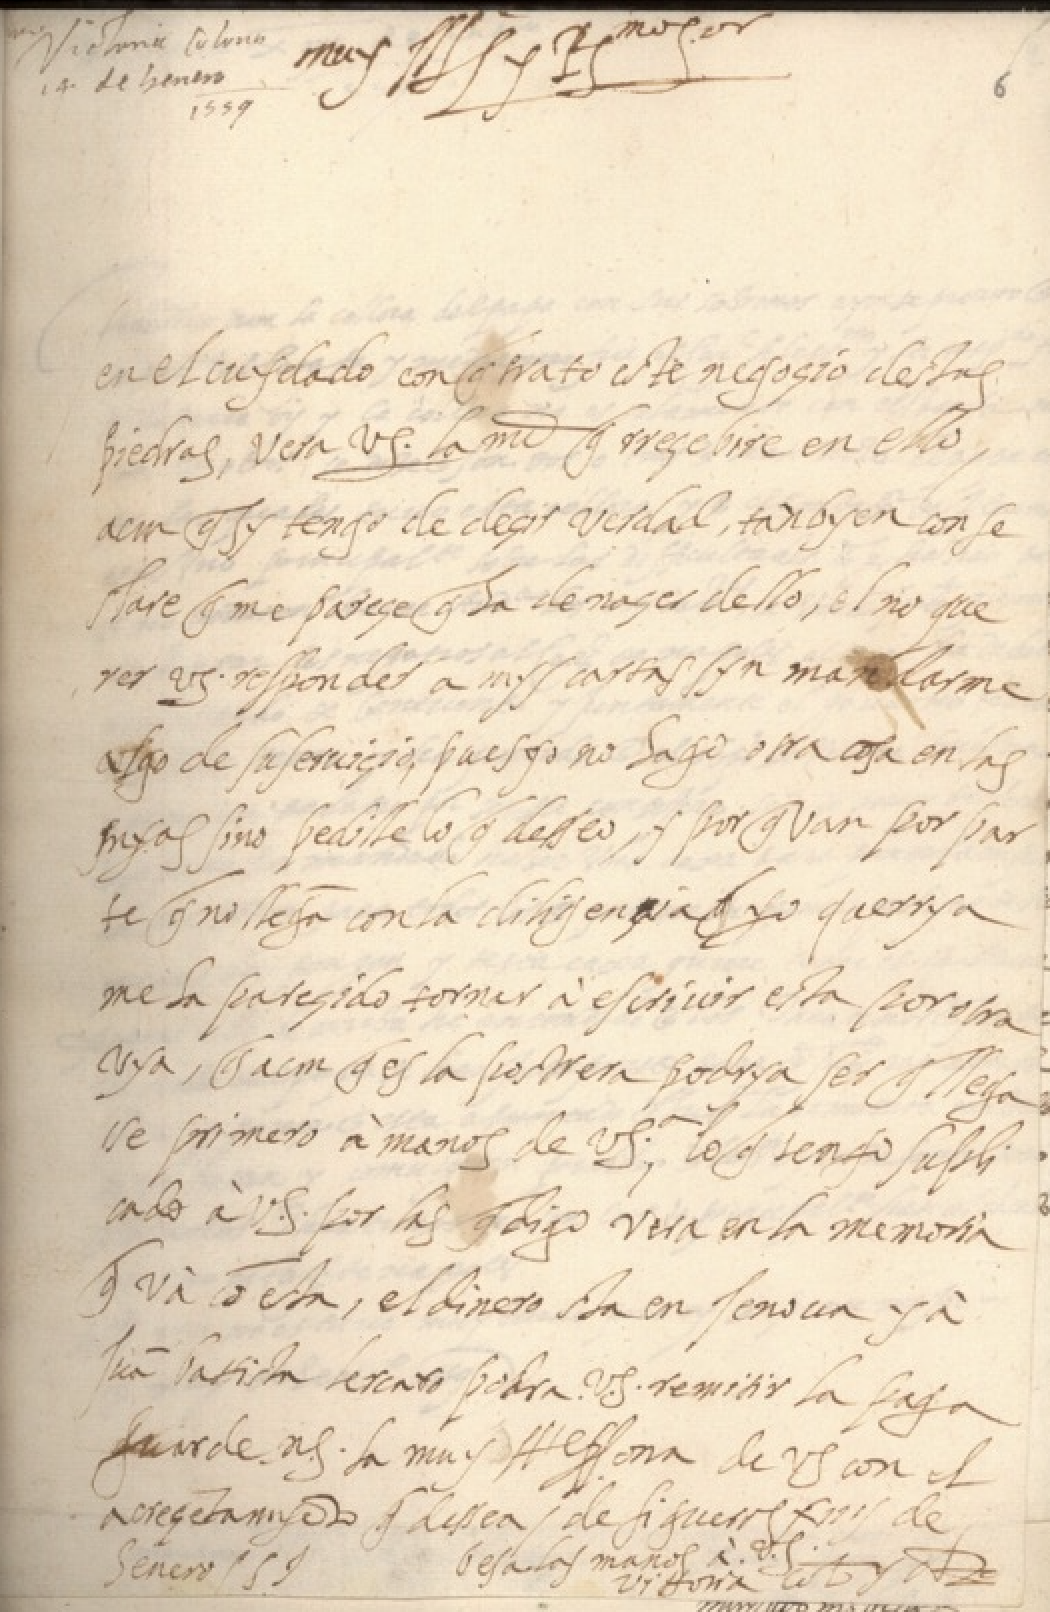 Victoria Colona
14 de henero
1559
muy Ill S y R mo s.or
6
en el cuydado con q trato este negoçio destas
piedras, vera VS. la md q rreçebire en ello,
aun q sy tengo de deçir verdad, tanbyen confe
sare q me pareçe q ha de naçer dello, el no que
rer VS. responder a mys cartas syn mandarme
algo de su serviçio, pues yo no hago otra cosa en las
myas sino pedille lo q desseo, y por q van por par
te q no llegã con la diligençia q yo querrya
me ha pareçido tornar à escriuir esta por otra
vya, q aun q es la postrera podrya ser q llega
se primero à manos de VS.ª, lo q tengo supli
cado à V.S. por las q digo vera en la memoria
q và cõ esta, el dinero sta en Jenoua y à
Juã batista lercaro podra V.S. remitir la paga
guarde nS. la muy Ill persona de VS con el
acreçetamyeto q dessea, de figueras de
henero
besa las manos à V.S.
Vittoria